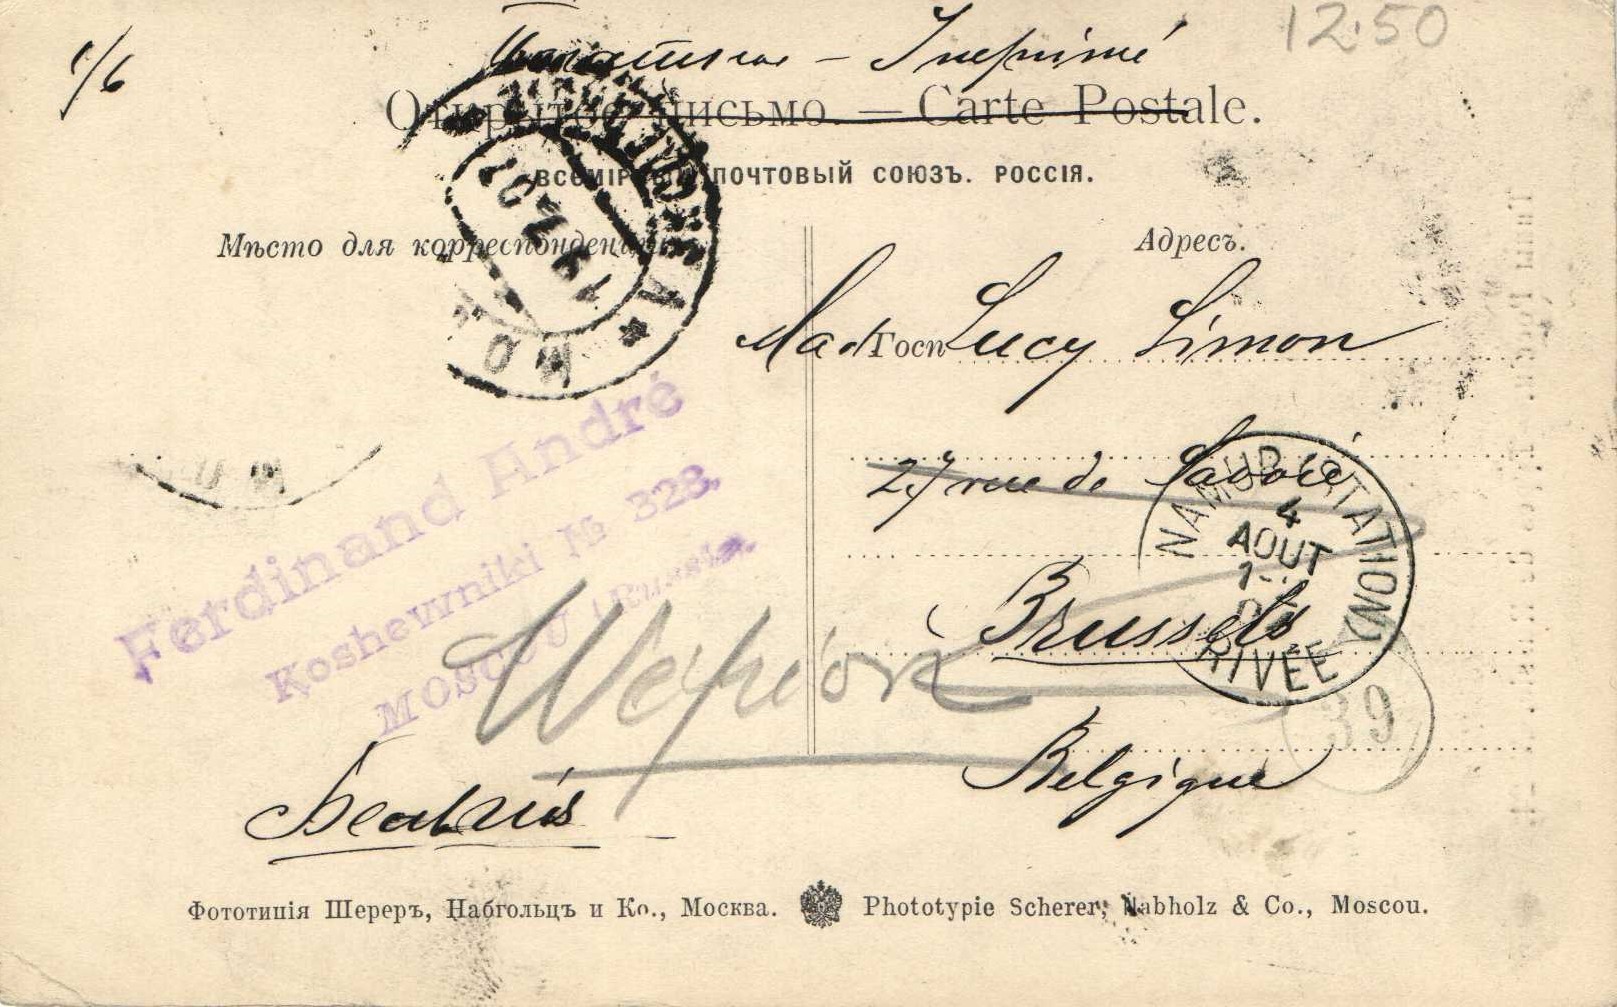 12.50
1/6
— Imprimé
Открытое письмо. — Carte Postale.
ВСЕМІРНЫЙ ПОЧТОВЫЙ СОЮЗЪ. РОССІЯ.
Мѣсто для корреспонденціи
Адресъ.
МОСКВА
19 7 07
Mad Госп Lucy Simon
27 rue de Savoie
NAMUR (STATION)
4
AOUT
ARRIVÉE
Brussels
Belgique
39
Ferdinand André
Koshewniki № 328.
MOSCOU (Russia).
Wépion
Фототипія Шереръ, Набгольцъ и Ко., Москва.
Phototypie Scherer, Nabholz & Co., Moscou.